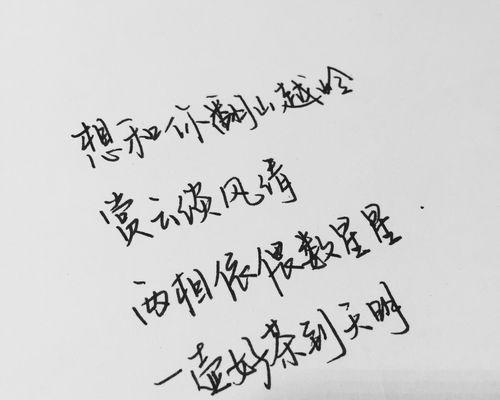 想和你翻山越岭
赏云须风情
两相依偎数星星
一壶好茶到天明